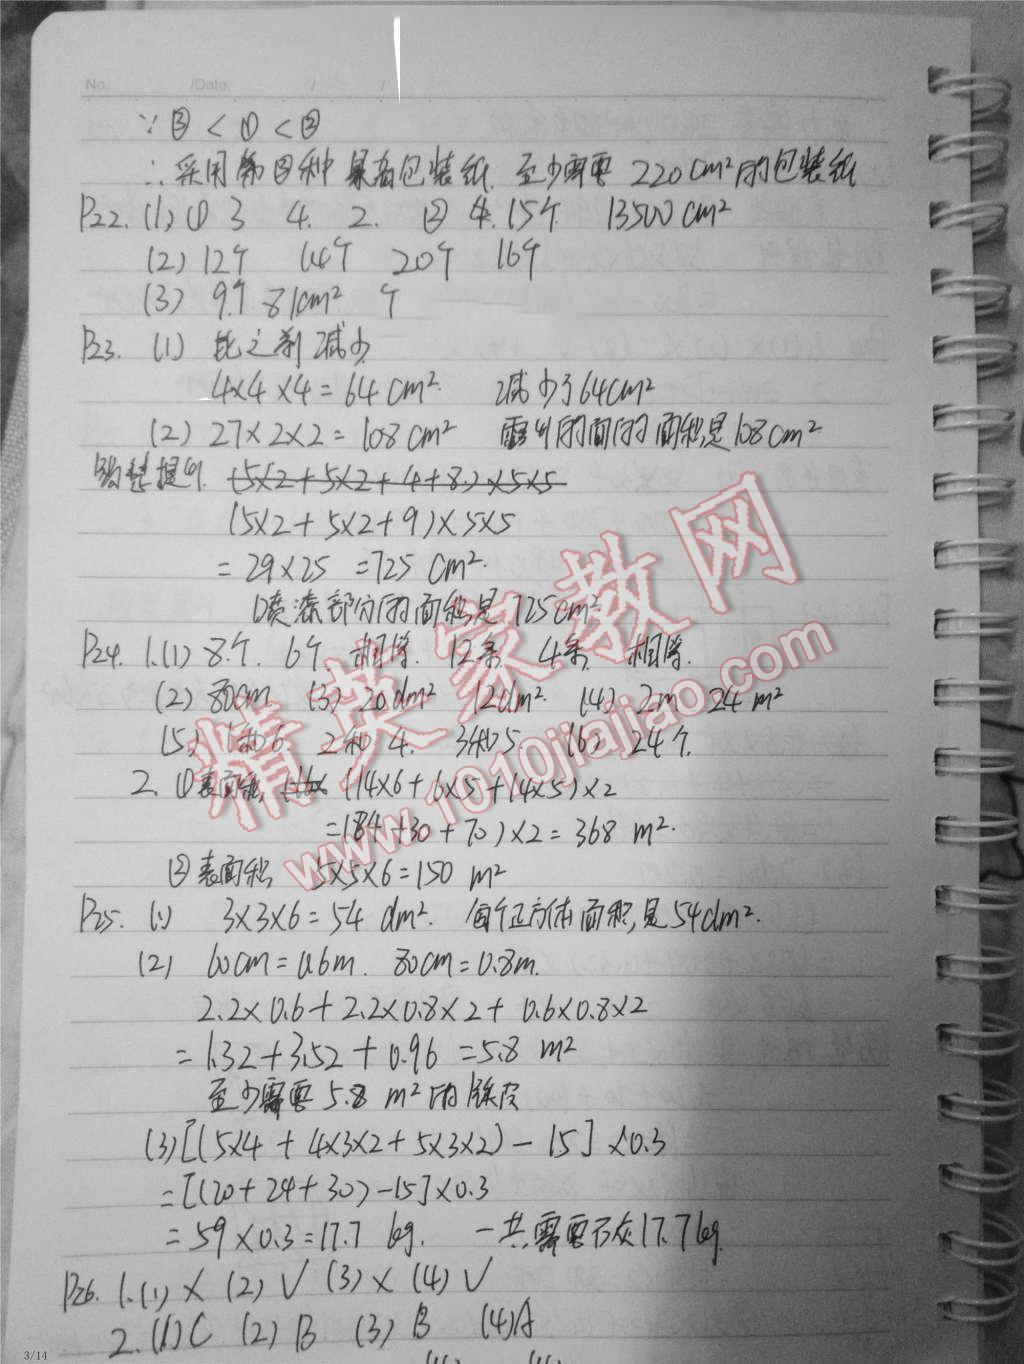 No. /Date. / /
∵ ③ < ① < ②
∴ 采用第③种 包装纸. 至少需要 220cm²的包装纸
P22. (1) ① 3 4. 2. ② 4. 15个 13500cm²
(2) 12个 14个 20个 16个
(3) 9个 81cm² 个
P23. (1) 比之前减少
4×4×4=64cm². 减少了64cm²
(2) 27×2×2=108cm² 露出的面的面积是108cm²
提升. (5×2+5×2+4+8)×5×5
(5×2+5×2+9)×5×5
=29×25 =725cm².
喷漆部分的面积是725cm².
P24. 1.(1) 8个. 6个 相等. 12条. 4条. 相等.
(2) 80cm (3) 20dm² 12dm² (4) 2m 24m²
(5) 1和6. 2和4. 3和5 (6) 24个.
2. ①表面积 (14×6+6×5+14×5)×2
=(84+30+70)×2=368 m².
②表面积 5×5×6=150 m²
P25. (1) 3×3×6=54 dm². 每个正方体面积是54dm².
(2) 60cm=0.6m. 80cm=0.8m.
2.2×0.6+2.2×0.8×2+0.6×0.8×2
=1.32+3.52+0.96 =5.8 m²
至少需要5.8 m²的铁皮
(3)[(5×4+4×3×2+5×3×2)-15]×0.3
=[(20+24+30)-15]×0.3
=59×0.3=17.7 kg. 一共需要石灰17.7kg.
P26. 1.(1)× (2)√ (3)× (4)√
2.(1)C (2)B (3)B (4)A
精英家教网
www.1010jiajiao.com
3/14